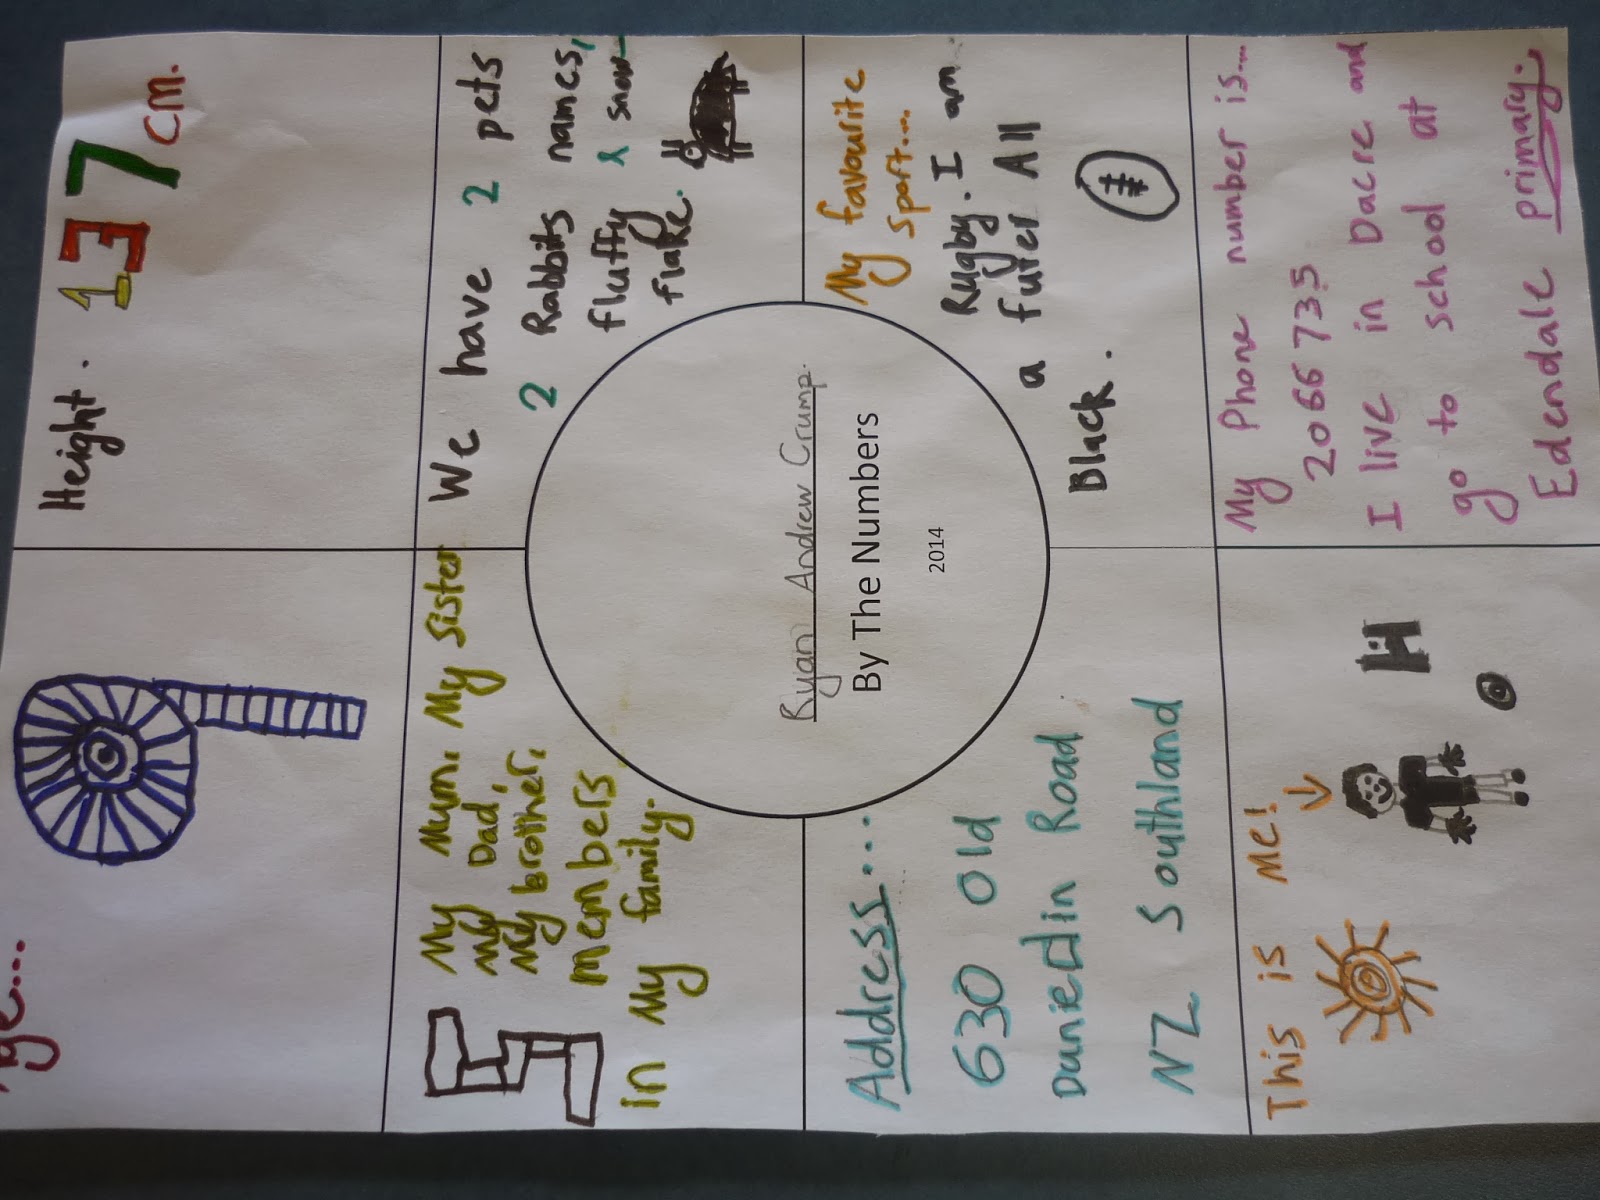 Age...
9
Height. 137 cm.
My Mum. My Sister
My Dad,
My brother,
5 members
in My family.
We have 2 pets
2 Rabbits names,
fluffy & snow-
flake.
Ryan Andrew Crump.
By The Numbers
2014
Address....
630 Old
Dunedin Road
NZ Southland
My favourite
sport....
Rugby. I am
a futer All
Black.
This is Me!
H
My Phone number is....
2066735
I live in Dacre and
go to school at
Edendale primary.